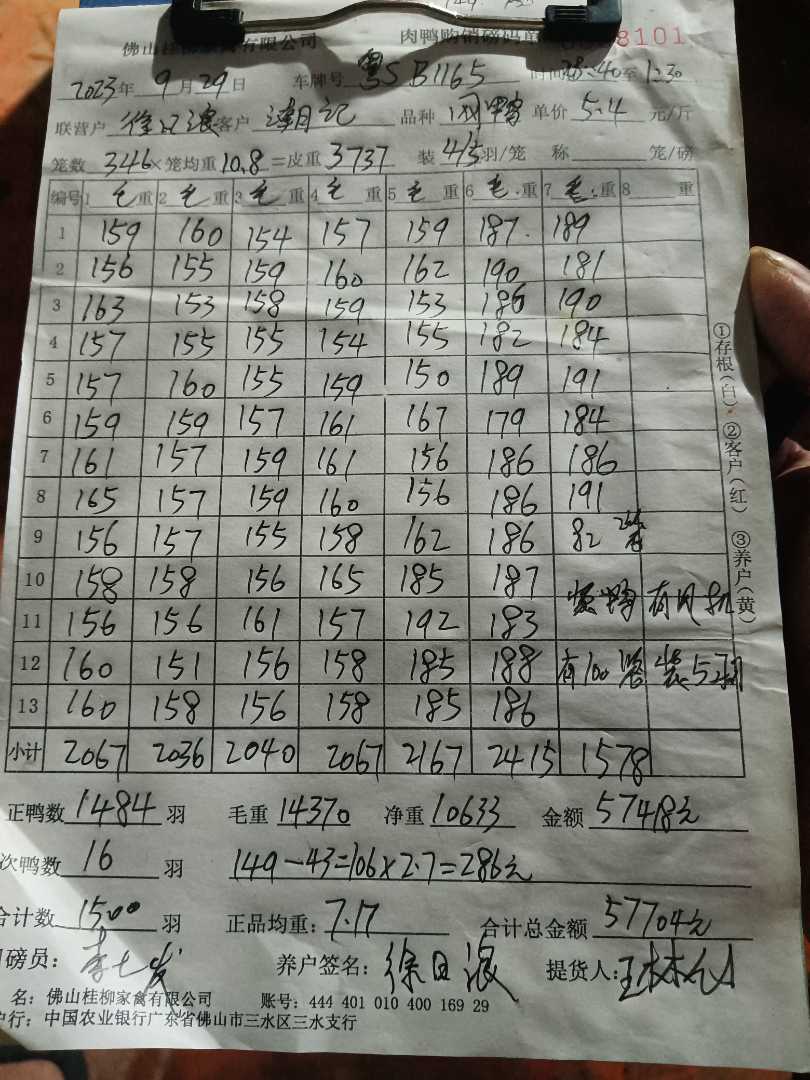 佛山桂柳家禽有限公司 肉鸭购销磅码单 8101
2023年9月29日 车牌号 粤SB1165 时间 至1:30
联营户 客户 品种 单价 5.4 元/斤
笼数 346 × 笼均重 10.8 = 皮重 3737 装 4/5 羽/笼 称 笼/磅
编号 1 毛 重 2 毛 重 3 毛 重 4 毛 重 5 毛 重 6 毛 重 7 毛 重 8 重
1 159 160 154 157 159 187 189
2 156 155 159 160 162 190 181
3 163 153 158 159 153 186 190
4 157 155 155 154 155 182 184
5 157 160 155 159 150 189 191
6 159 159 157 161 167 179 184
7 161 157 159 161 156 186 186
8 165 157 159 160 156 186 191
9 156 157 155 158 162 186 82
10 158 158 156 165 185 187
11 156 156 161 157 192 183
12 160 151 156 158 185 188 有100笼 装5羽
13 160 158 156 158 185 186
小计 2067 2036 2040 2067 2167 2415 1578
正鸭数 1484 羽 毛重 14370 净重 10633 金额 57418元
次鸭数 16 羽 149-43=106×2.7=286元
合计数 1500 羽 正品均重: 7.17 合计总金额 57704元
磅员: 养户签名: 徐日浪 提货人:
名: 佛山桂柳家禽有限公司 账号: 444 401 010 400 169 29
户行: 中国农业银行广东省佛山市三水区三水支行
①存根(白) ②客户(红) ③养户(黄)